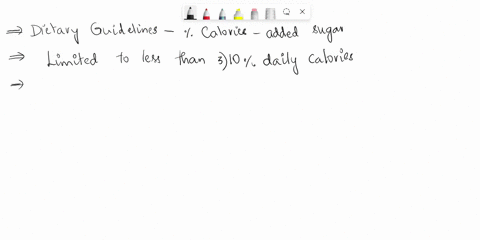 ⇒ Dietary Guidelines – % Calories – added sugar
⇒ Limited to less than 3)10% daily calories
→